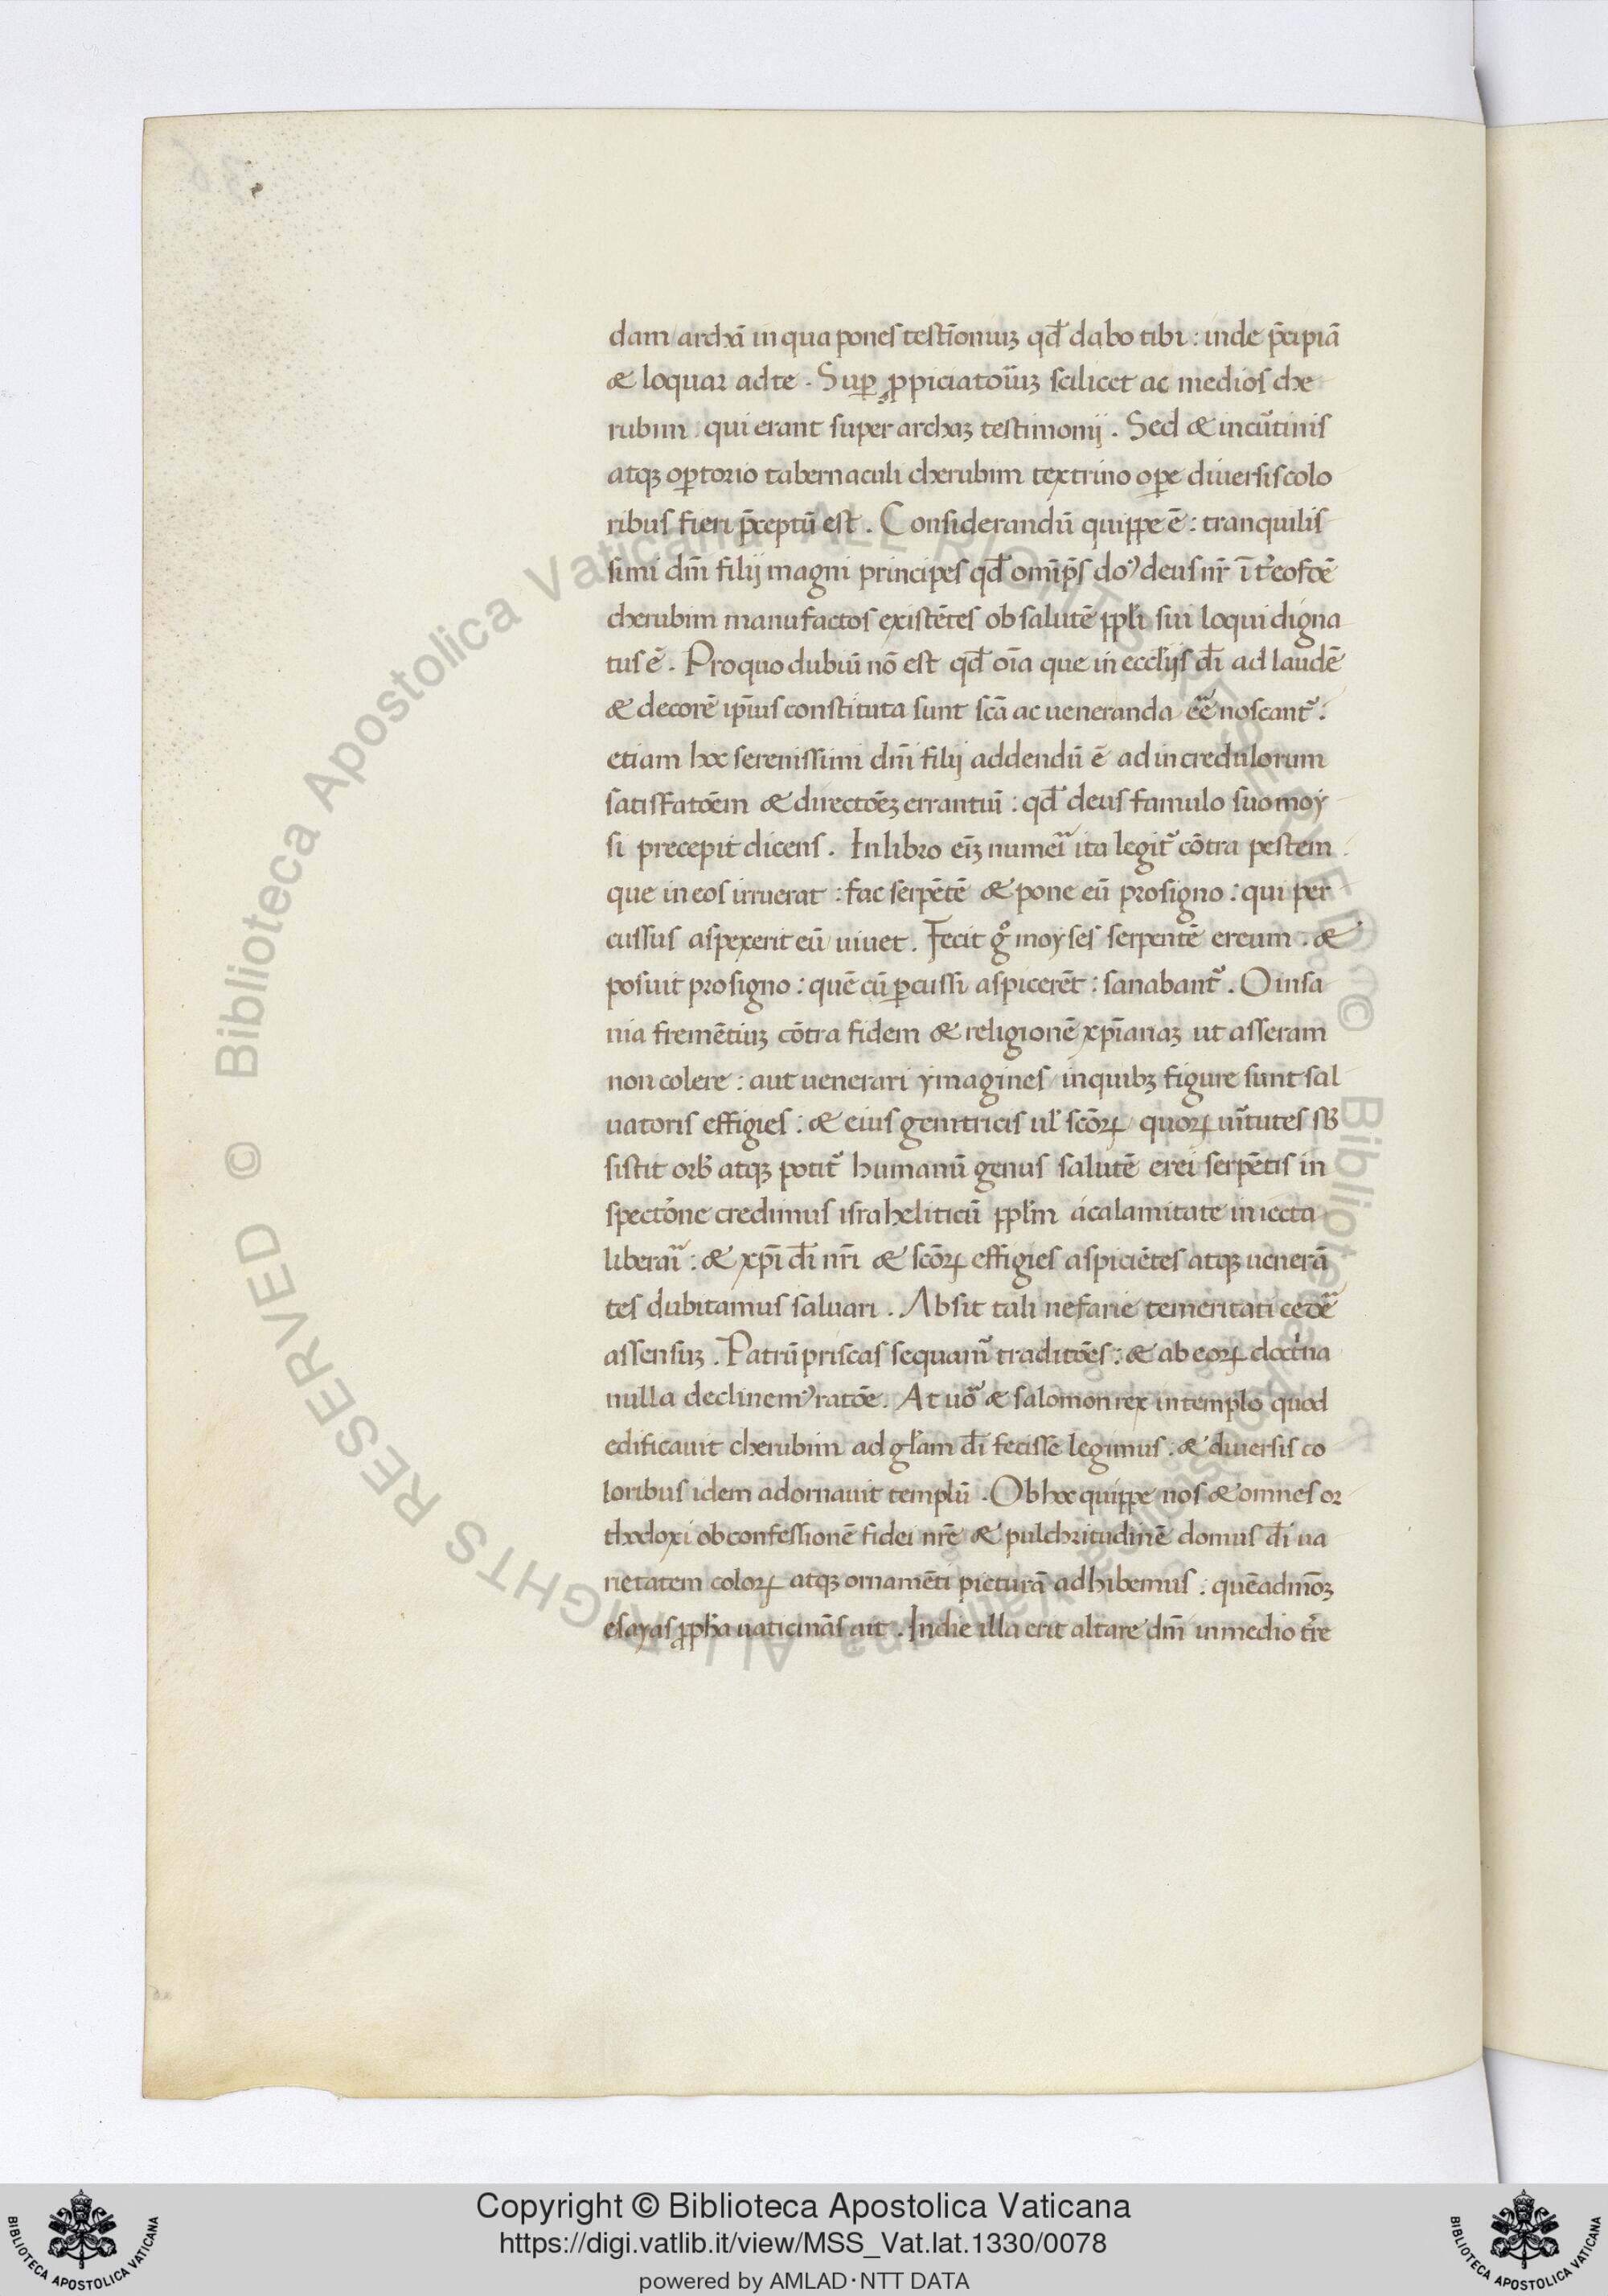 dam archã in qua pones testĩoniuꝫ qđ dabo tibi : inde p̃cipiã
& loquar ad te . Suꝑ ꝓpiciatoriuꝫ scilicet ac medios che
rubim : qui erant super archaꝫ testimonij . Sed & in cũtinis
atqꝫ oꝑtorio tabernaculi cherubim textrino oꝑe diversis colo
ribus fieri p̃ceptũ est . Considerandũ quippe ẽ : tranquilis
simi dñi filij magni principes qđ omĩp̃s doꝰ deus nr̃
cherubim manufactos existẽtes ob salutẽ ppl̃i sui loqui digna
tus ẽ . Pro quo dubiũ nõ est qđ oĩa que in eccl̃ijs dĩ ad laudẽ
& decorẽ ip̃ius constituta sunt scã ac ueneranda eẽ noscant᷑ .
etiam hoc serenissimi dñi filij addendũ ẽ ad incredulorum
satisfatõem & directõeꝫ errantiũ : qđ deus famulo suo moy
si precepit dicens . In libro eĩꝫ numeri ita legit᷑ cõtra pestem
que in eos irruerat : fac serpẽtẽ & pone eũ pro signo : qui per
cussus aspexerit eũ uiuet . Fecit gͦ moyses serpentẽ ereum . &
posuit pro signo : quẽ cũ ꝑcussi aspicerẽt : sanabant᷑ . O insa
nia fremẽtiuꝫ cõtra fidem & religionẽ xp̃ianaꝫ ut asseram
non colere : aut uenerari ymagines / in quibꝫ figure sunt sal
uatoris effigies : & eius genitricis ul̃ scõꝝ / quoꝝ uĩtutes sb̃
sistit orb̃ atqꝫ potit᷑ humanũ genus salutẽ erei serpẽtis in
spectõne credimus israheliticũ ppl̃m a calamitate iniecta
liberari : & xp̃i dĩ nr̃i & scõꝝ effigies aspiciẽtes atqꝫ uenerã
tes dubitamus saluari . Absit tali nefarie temeritati cedẽ
assensuꝫ . Patrũ priscas sequam᷑ traditões : & ab eoꝝ doct̃na
nulla declinemꝰ ratõe . At uõ & salomon rex in templo quod
edificauit cherubim ad gl̃am dĩ fecisse legimus : & diuersis co
loribus idem adornauit templũ . Ob hoc quippe nos & omnes or
thodoxi ob confessionẽ fidei nr̃e & pulchritudinẽ domus dĩ ua
rietatem coloꝝ atqꝫ ornamẽti picturã adhibemus : quẽadmõꝫ
esayas ꝓph̃a uaticinãs ait . In die illa erit altare dñi in medio tr̃e
Copyright © Biblioteca Apostolica Vaticana
https://digi.vatlib.it/view/MSS_Vat.lat.1330/0078
powered by AMLAD·NTT DATA
BIBLIOTECA APOSTOLICA VATICANA
BIBLIOTECA APOSTOLICA VATICANA
© Biblioteca Apostolica Vaticana ALL RIGHTS RESERVED
© Biblioteca Apostolica Vaticana ALL RIGHTS RESERVED